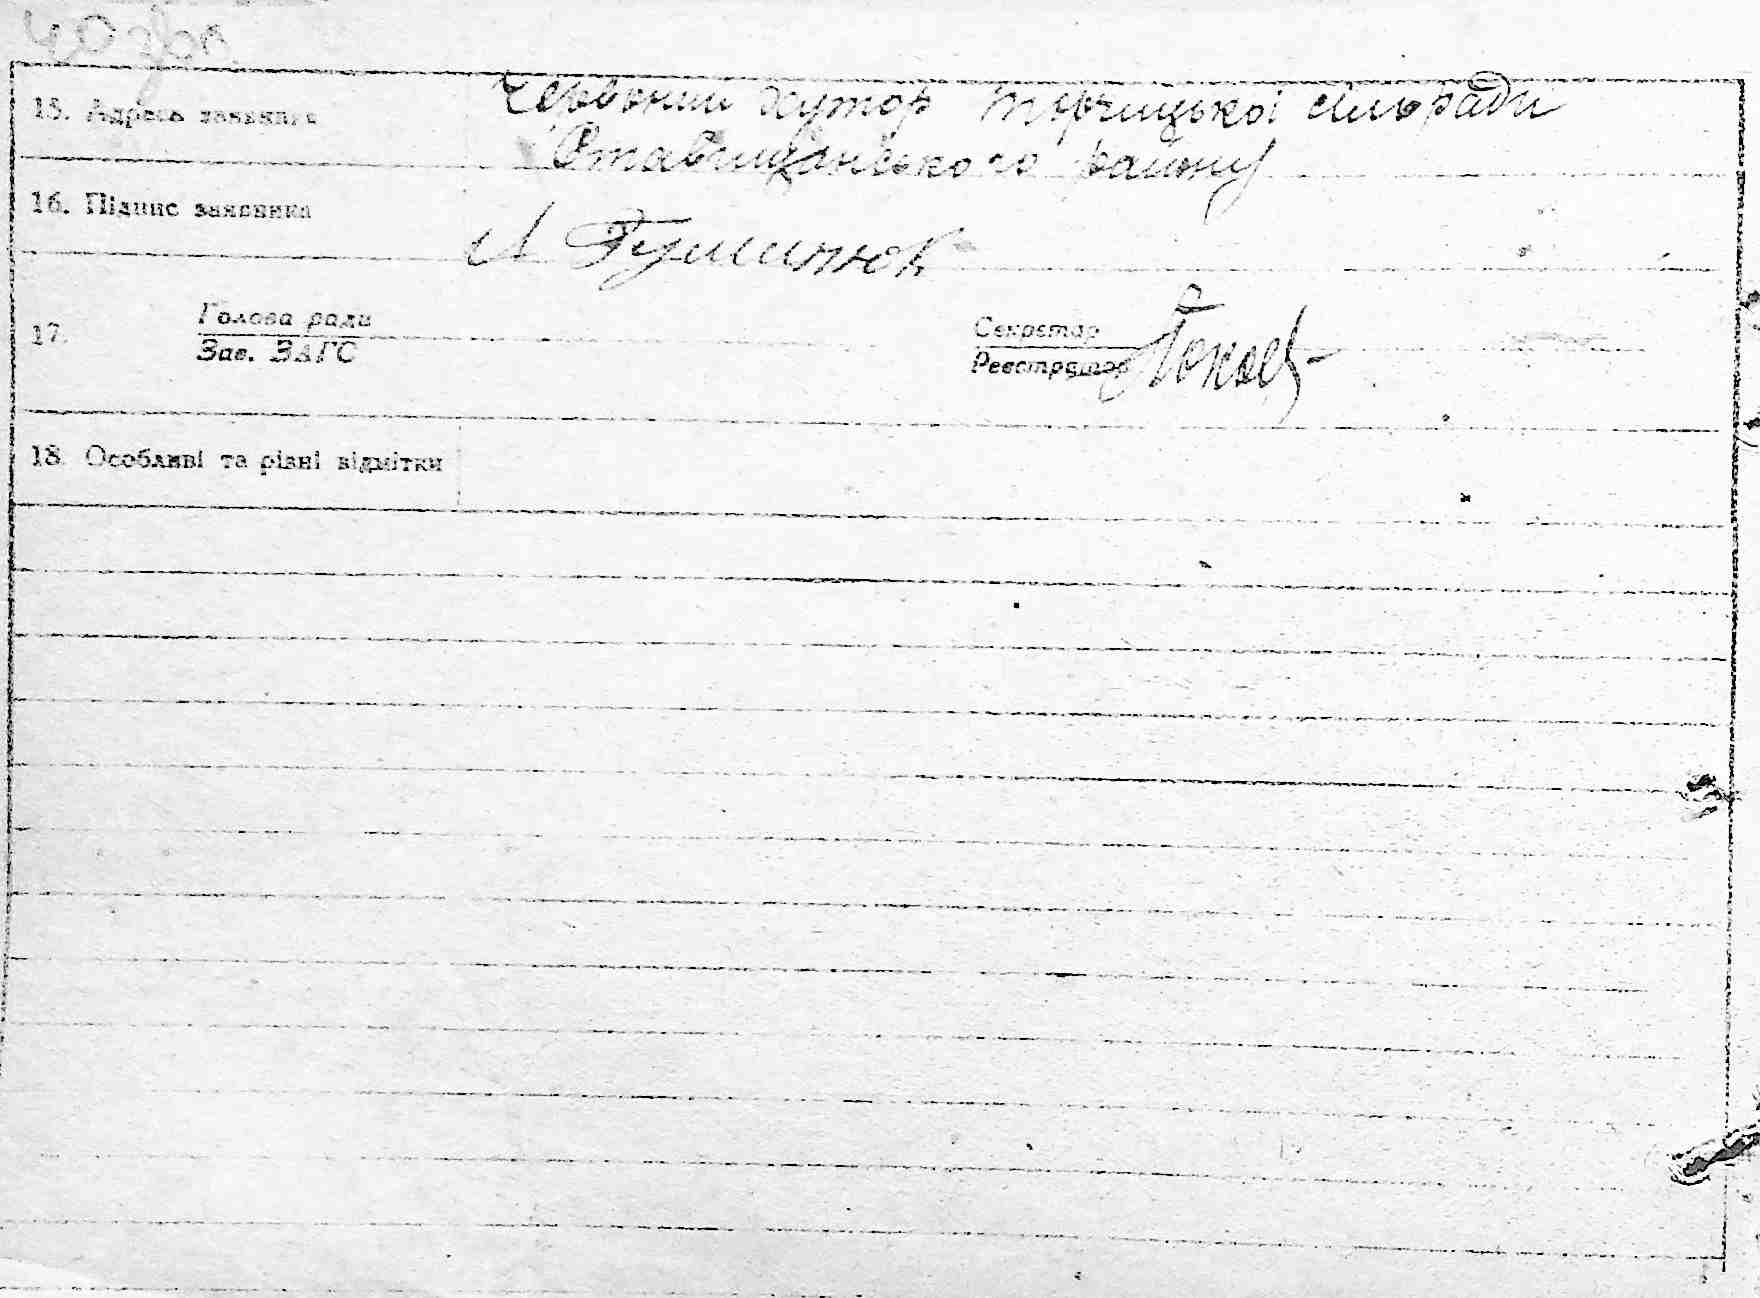 15. Адреса заявника Червоний хутор Торчицької сільради
Ставищанського району
16. Підпис заявника Л Гуминюк
17. Голова ради Секретар
Зав. ЗАГС Реєстратор
18. Особливі та різні відмітки